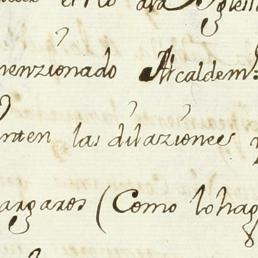 el no ara Yglesi
menzionado Alcaldem.
nten las dilaziones
argares (Como lo hag